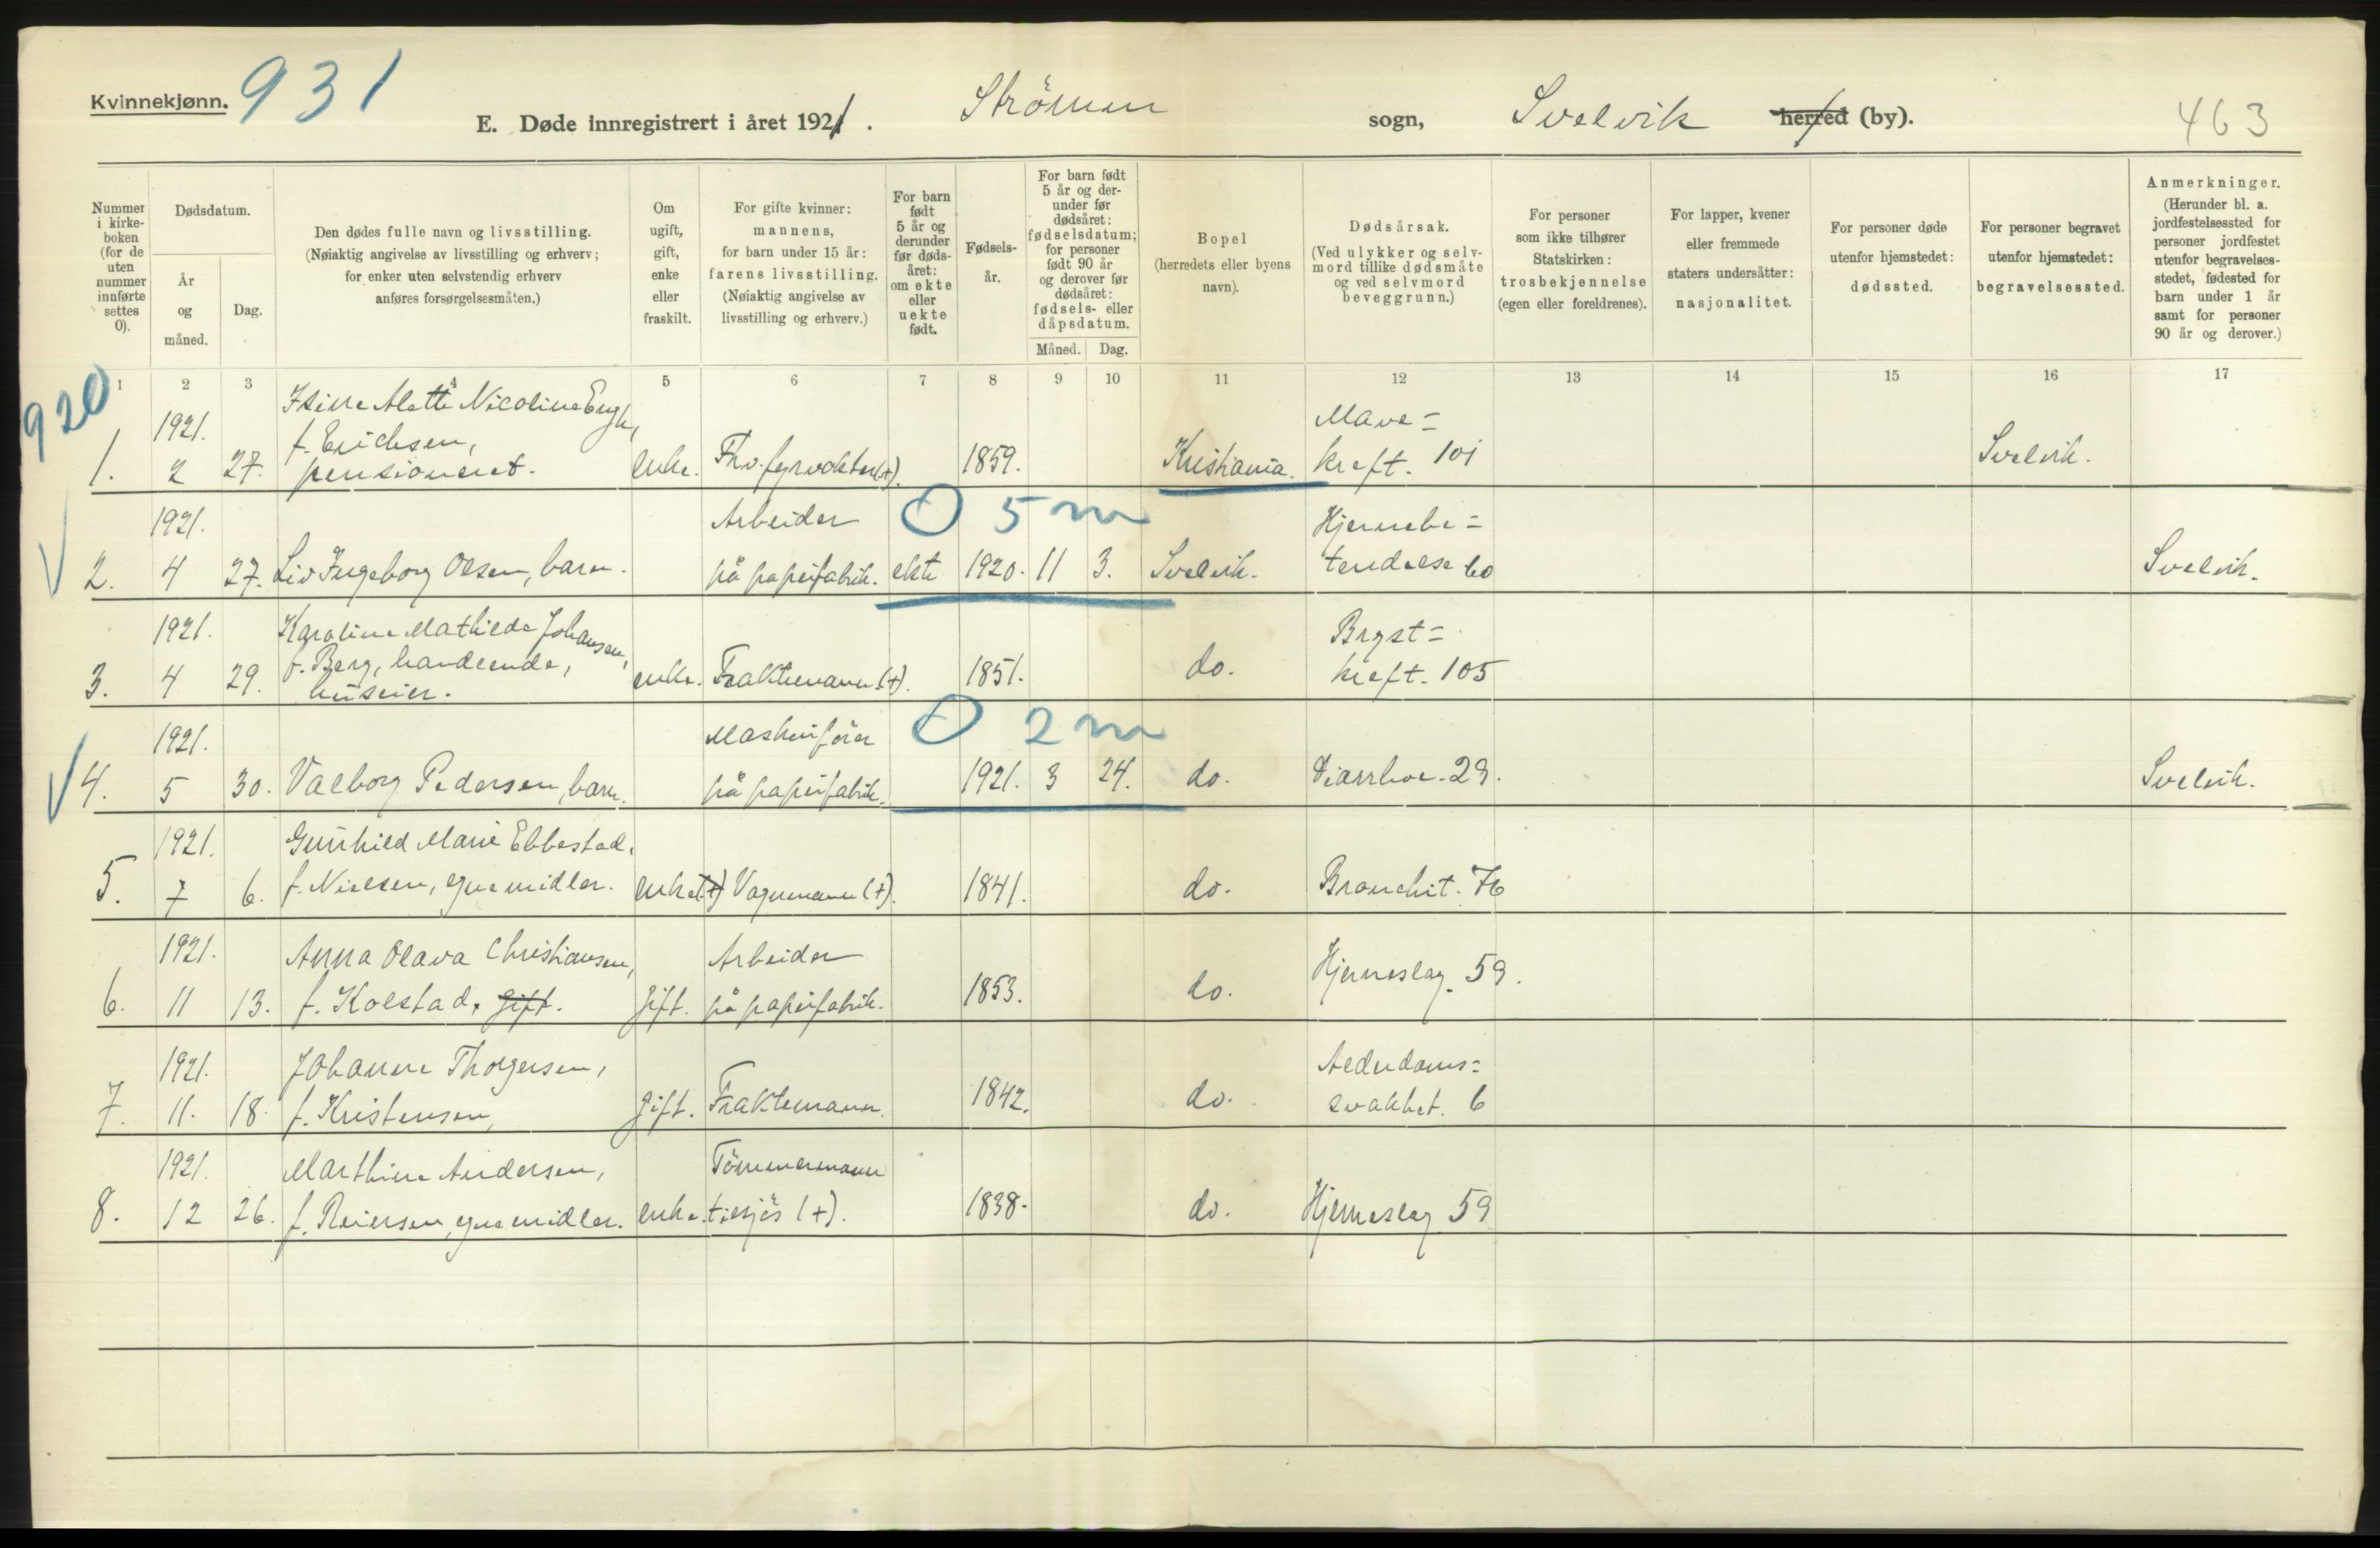 Kvinnekjønn. 931
E. Døde innregistrert i året 1921. Strömm sogn, Svelvik herred (by). 463
Nummer i kirkeboken (for de uten nummer innførte settes 0).
Dødsdatum.
År og måned.
Dag.
Den dødes fulle navn og livsstilling.
(Nøiaktig angivelse av livsstilling og erhverv;
for enker uten selvstendig erhverv
anføres forsørgelsesmåten.)
Om ugift, gift, enke eller fraskilt.
For gifte kvinner:
mannens,
for barn under 15 år:
farens livsstilling.
(Nøiaktig angivelse av
livsstilling og erhverv.)
For barn født 5 år og derunder før dødsåret: om ekte eller uekte født.
Fødselsår.
For barn født 5 år og derunder før dødsåret: fødselsdatum; for personer født 90 år og derover før dødsåret: fødsels- eller dåpsdatum.
Måned. Dag.
Bopel
(herredets eller byens
navn).
Dødsårsak.
(Ved ulykker og selvmord tillike dødsmåte og ved selvmord beveggrunn.)
For personer
som ikke tilhører
Statskirken:
trosbekjennelse
(egen eller foreldrenes).
For lapper, kvener
eller fremmede
staters undersåtter:
nasjonalitet.
For personer døde
utenfor hjemstedet:
dødssted.
For personer begravet
utenfor hjemstedet:
begravelsessted.
Anmerkninger.
(Herunder bl. a.
jordfestelsessted for
personer jordfestet
utenfor begravelses-
stedet, fødested for
barn under 1 år
samt for personer
90 år og derover.)
1 2 3 4 5 6 7 8 9 10 11 12 13 14 15 16 17
920
1921. Alette Nicoline Engh, Mave=
f. Erichsen,
1. 2 27. pensioneret. enke. Fhv. fyrvokter (+). 1859. Kristiania. kreft. 101 Svelvik.
1921. Arbeider 5 m Hjernebe=
2. 4 27. Liv Ingeborg Olsen, barn. på papirfabrik. ekte 1920. 11 3. Svelvik. tendelse 60 Svelvik.
1921. Karoline Mathilde Johansen, Bryst=
f. Berg, handlende,
3. 4 29. huseier. enke. Fraktemann (+). 1851. do. kreft. 105
1921. Maskinfører 2 m
4. 5 30. Valborg Pedersen, barn. på papirfabrik. 1921. 3 24. do. Diarrhoe. 29. Svelvik.
1921. Gunhild Marie Ebbestad,
5. 7 6. f. Nielsen, egne midler. enke (+) Vognmann (+). 1841. do. Bronchit. 76
1921. Anna Olava Christiansen, Arbeider
6. 11 13. f. Kolstad, gift. gift. på papirfabrik. 1853. do. Hjerneslag. 59.
1921. Johanne Thorgersen, Alderdoms=
7. 11. 18. f. Kristensen, gift. Fraktemann. 1842. do. svakhet. 6
1921. Marthine Andersen, Tömmermann
8. 12 26. f. Reiersen, egne midler. enke. tilsjös (+). 1838. do. Hjerneslag 59